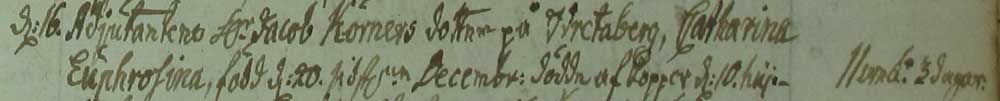 d: 16. Adjutantens Hr Jacob Körners dotter på Ydretaberg, Catharina
Euphrosina, född d: 20. sidstl. Decembr: dödde af kopper d: 10. huj: – 11 mb. 2 dagar.